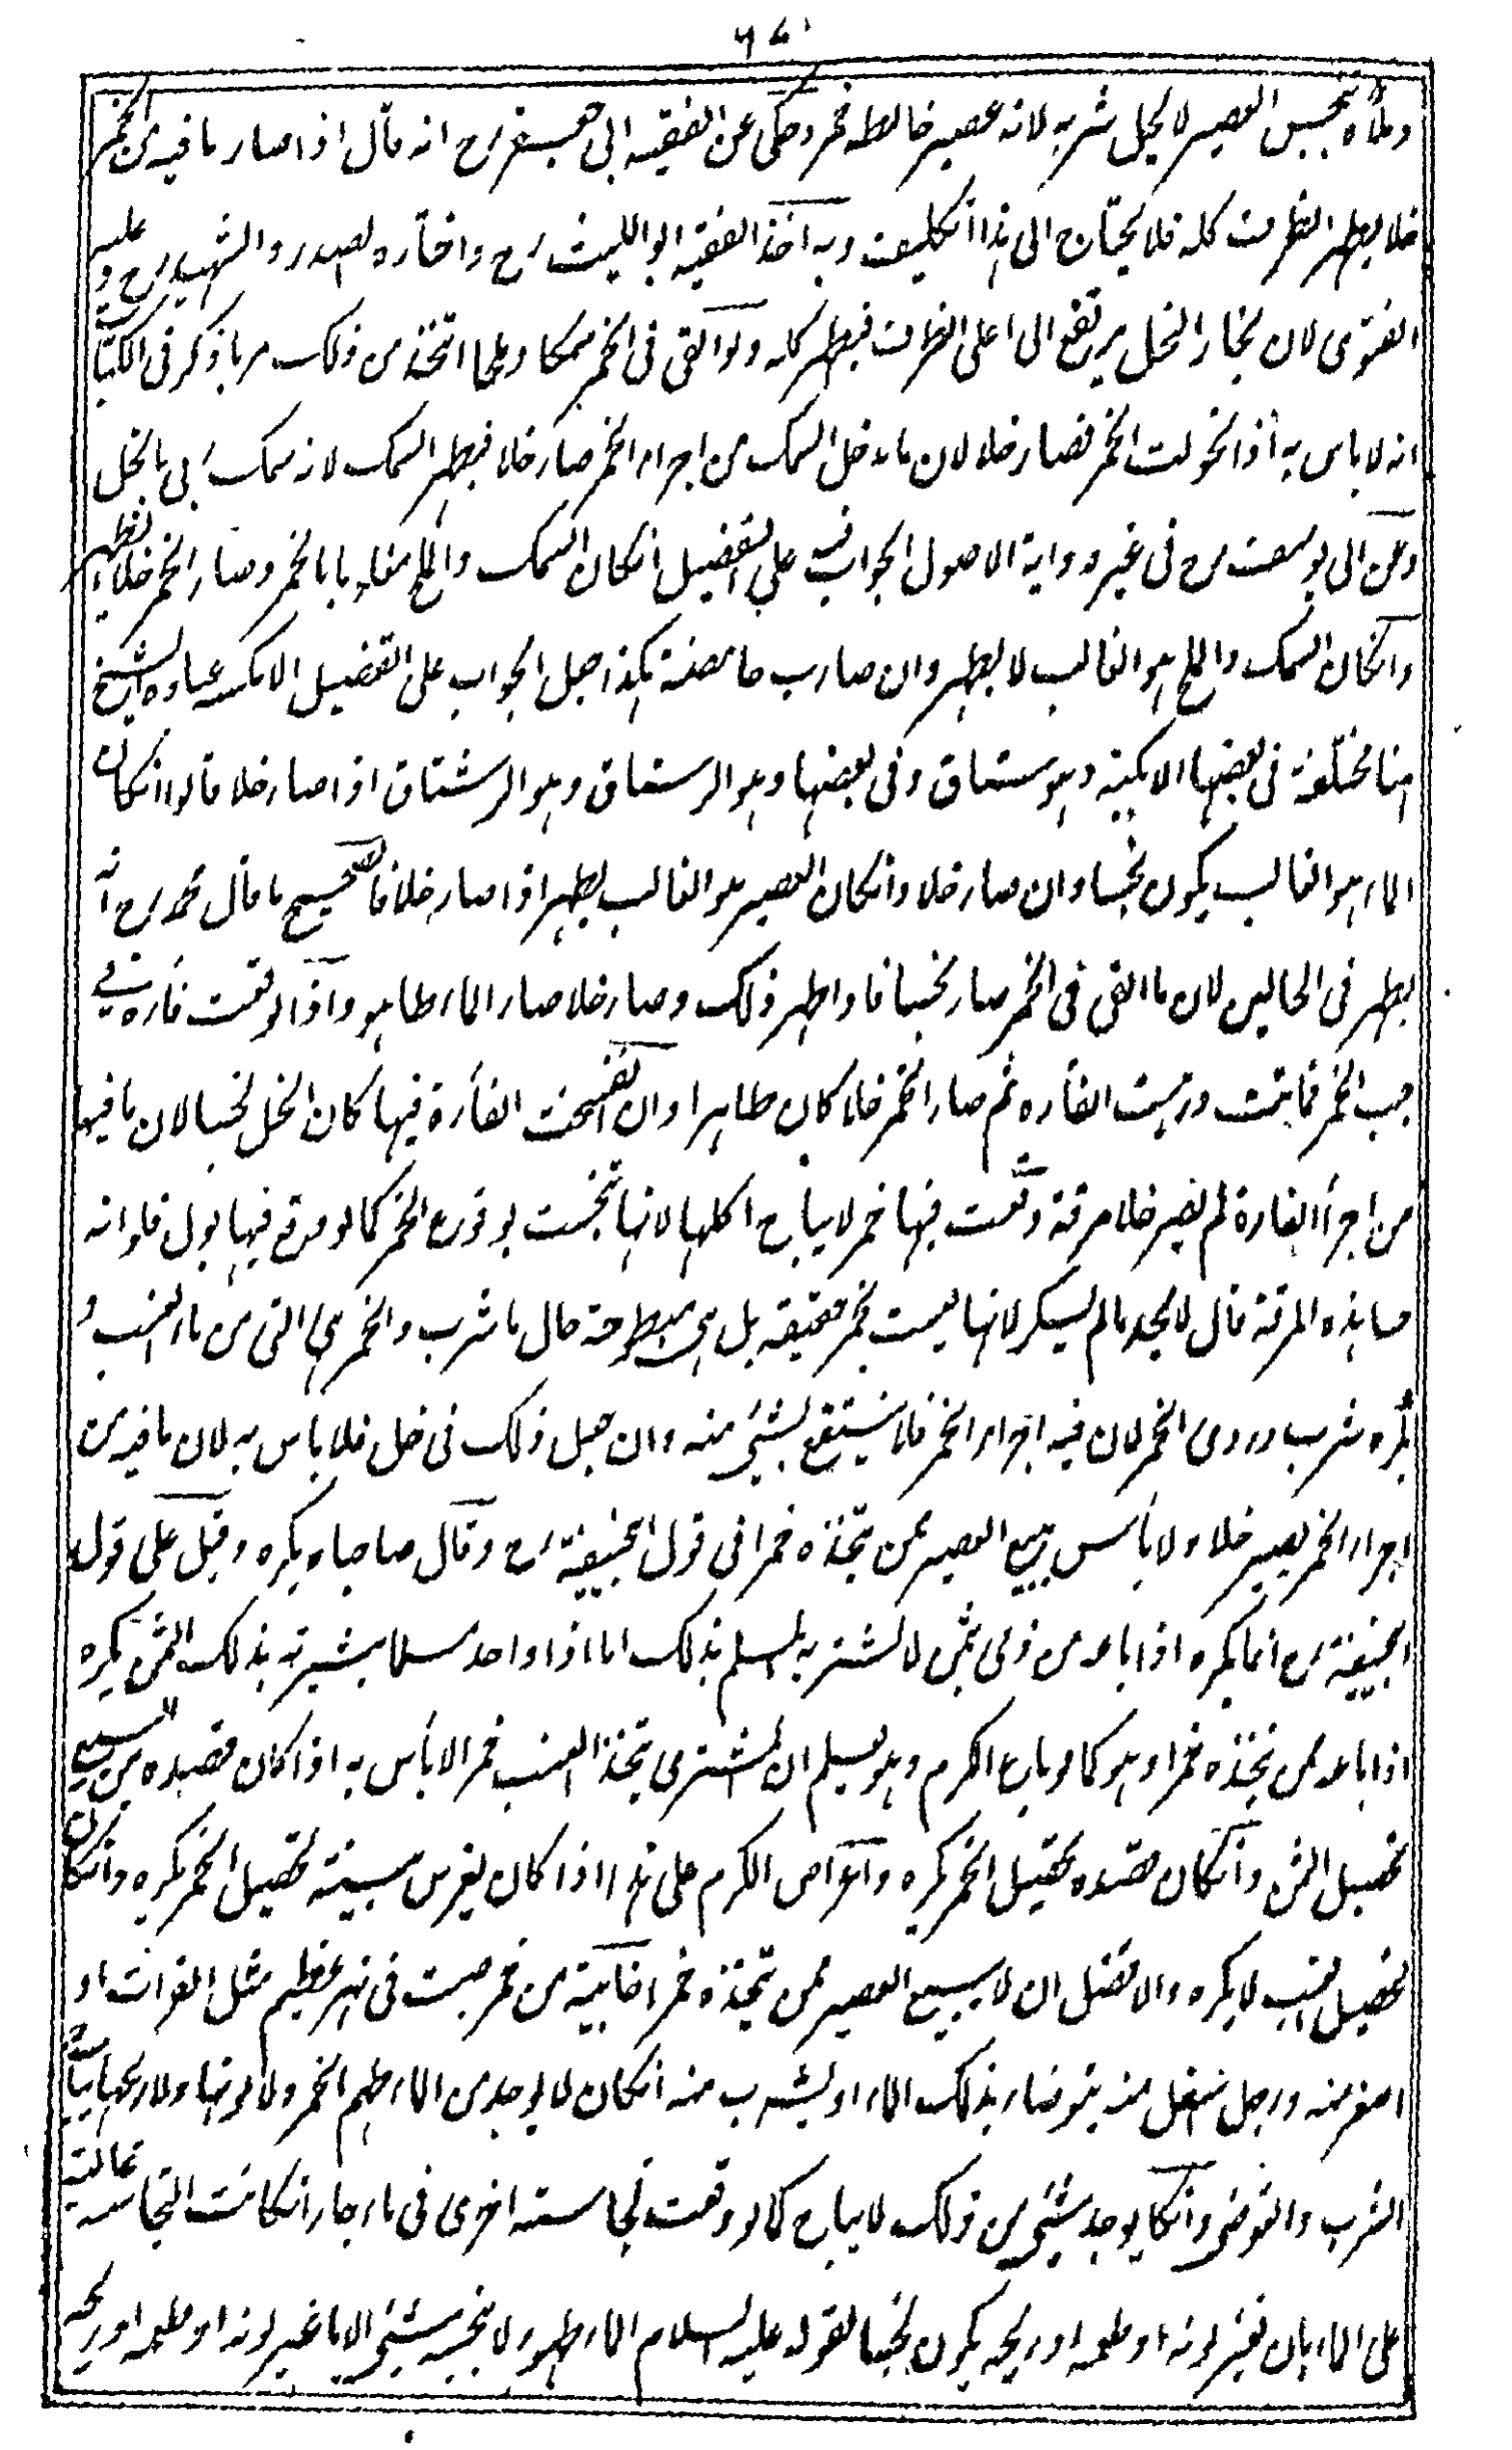 وملأه بنجس العصير لا يحل شربه لانه عصير خالطه خمر وحكى عن الفقيه ابى جعفر رح انه قال اذا صار ما فيه من الخمر
خلا يطهر الظرف كله فلا يحتاج الى هذا التكليف وبه اخذ الفقيه ابو الليث رح واختاره الصدر والشهيد رح وعليه
الفتوى لان بخار الخل يرتفع الى اعلى الظرف فيطهر كله ولو القى فى الخمر سمكا وملحا اتخذ من ذلك مربا ذكر فى الكتاب
انه لا باس به اذا تحولت الخمر فصار خلا لان ما دخل السمك من اجزاء الخمر صار خلا فيطهر السمك لانه سمك ربى بالخل
وعن ابى يوسف رح فى غير رواية الاصول الجواب فيه على التفضيل انكان السمك والملح مغلوبا بالخمر وصار الخمر خلا يطهر
وانكان السمك والملح هو الغالب لا يطهر وان صارت حامضة هكذا جعل الجواب على التفضيل الا ان عبارة الشيخ
هنا مختلفة فى بعضها وهو ستاق وفى بعضها وهو الرستاق وهو الرشتاق اذا صار خلا قالوا انكان
الماء هو الغالب يكون نجسا وان صار خلا وانكان العصير هو الغالب يطهر اذا صار خلا فالصحيح ما قال محمد رح انه
يطهر فى الحالين لان ما القى فى الخمر صار نجسا فاذا طهر ذلك وصار خلا صار الماء طاهرا واذا وقعت فارة فى
جب الخمر فماتت ورميت الفأرة ثم صار الخمر خلا كان طاهرا وان تفسخت الفأرة فيها كان الخل نجسا لان ما فيها
من اجزأ الفارة لم يصر خلا مرقة وقعت فيها خمر لا يباح اكلها لانها تنجست بوقوع الخمر كما لو وقع فيها بول فلو انه
حسا هذه المرقة قال لا يحد ما لم يسكر لانها ليست بخمر حقيقة بل هى مطبوخة حال ما شرب والخمر هى التى من ماء العنب و
يكره شرب دردى الخمر لان فيه اجزاء الخمر فلا ينتفع بشئ منه وان جعل ذلك فى خل فلا باس به لان ما فيه من
اجزاء الخمر يصير خلا ولا بأس ببيع العصير ممن يتخذه خمرا فى قول ابيحنيفة رح وقال صاحباه يكره وقيل على قول
ابيحنيفة رح انما يكره اذا باعه من ذمى بثمن لا يشتريه المسلم بذلك اما اذا وجد مسلما يشتريه بذلك الثمن يكره
اذا باعه ممن يتخذه خمرا وهو كما لو باع الكرم وهو يعلم ان المشترى يتخذ العنب خمرا لا بأس به اذا كان قصده من البيع
تحصيل الثمن وانكان قصده تحصيل الخمر يكره واغراس الكرم على هذا اذا كان يغرس بنية تحصيل الخمر يكره وانكان
تحصيل العنب لا يكره والافضل ان لا يبيع العصير ممن يتخذه خمرا خابية من خمر صبت فى نهر عظيم مثل الفرات او
اصغر منه ورجل اسفل منه يتوضأ بذلك الماء او يشرب منه انكان لا يوجد من الماء طعم الخمر ولا لونها ولا ريحها يباح
الشرب والتوضى وانكان يوجد شئى من ذلك لا يباح كما لو وقعت نجاسته اخرى فى ماء جار انكانت النجاسة غالبة
على الماء بان تغير لونه او طعمه او ريحه يكون نجسا لقوله عليه السلام الماء طهور ولا ينجسه شئى الا ما غير لونه او طعمه او ريحه